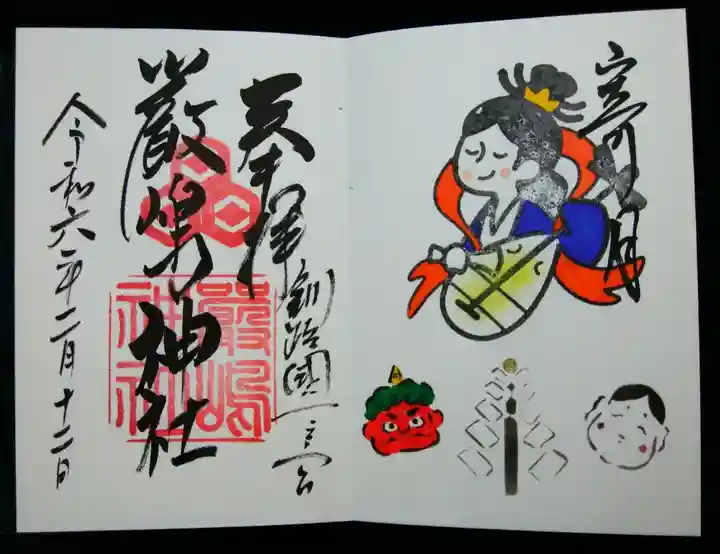 奉拝
釧路國一之宮
嚴嶋神社
嚴嶋神社
令和六年二月十二日